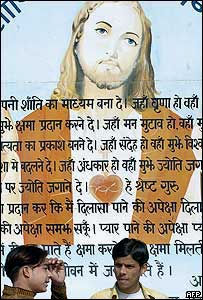 पनी शाँति का माध्यम बना दे। जहाँ घृणा हो वहाँ
मुझे क्षमा प्रदान करने दे। जहाँ मन मुटाव हो, वहाँ
त्यता का प्रकाश बनने दे। जहाँ संदेह हो वहाँ मुझे
में बदलने दे। जहाँ अंधकार हो वहाँ मुझे ज्योति
पर ज्योति जगाने दे। हे श्रेष्ट गुरु
प्रदान कर कि मैं दिलासा पाने की अपेक्षा
अपेक्षा समझ सकूँ। प्यार पाने की अपेक्षा
में ही पाते है क्षमा मिलती
जीवन में ज
AFP